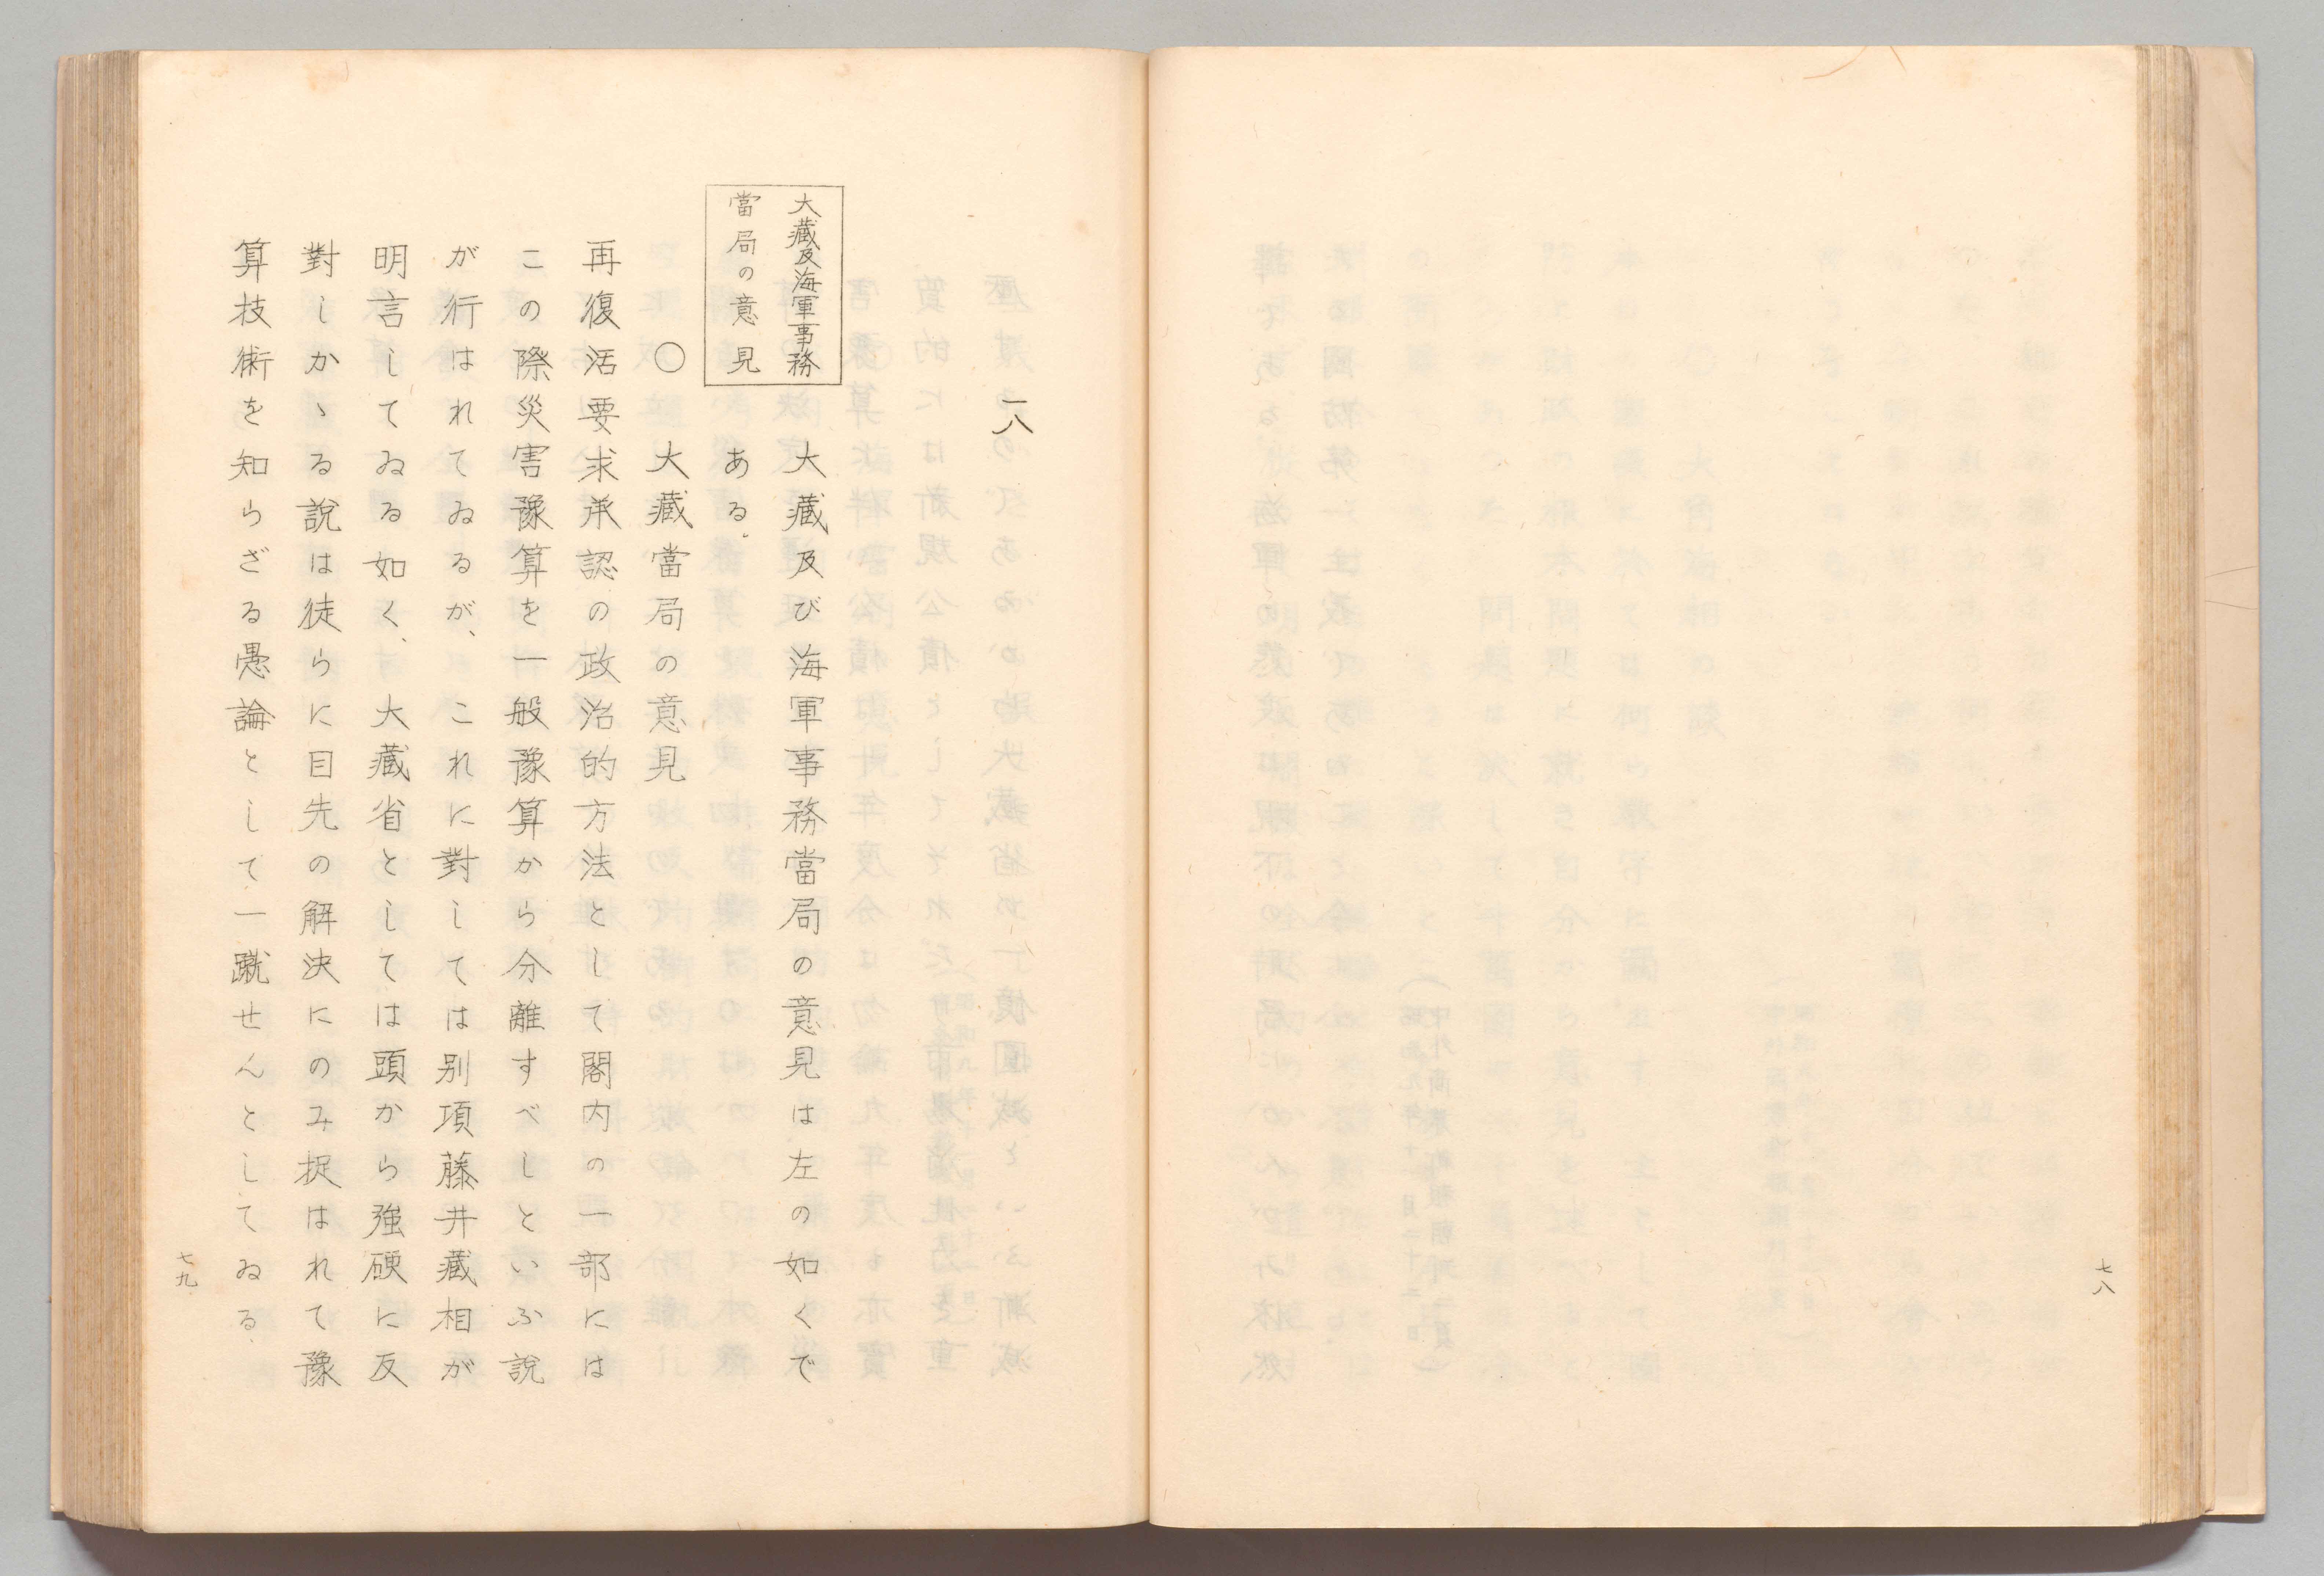 七八
一八
大藏及海軍事務
當局の意見
大藏及び海軍事務當局の意見は左の如くで
ある。
○　大藏當局の意見
再復活要求承認の政治的方法として閣内の一部には
この際災害豫算を一般豫算から分離すべしといふ說
が行はれてゐるが、これに對しては別項藤井藏相が
明言してゐる如く、大藏省としては頭から強硬に反
對しかゝる說は徒らに目先の解決にのみ捉はれて豫
算技術を知らざる愚論として一蹴せんとしてゐる、
七九